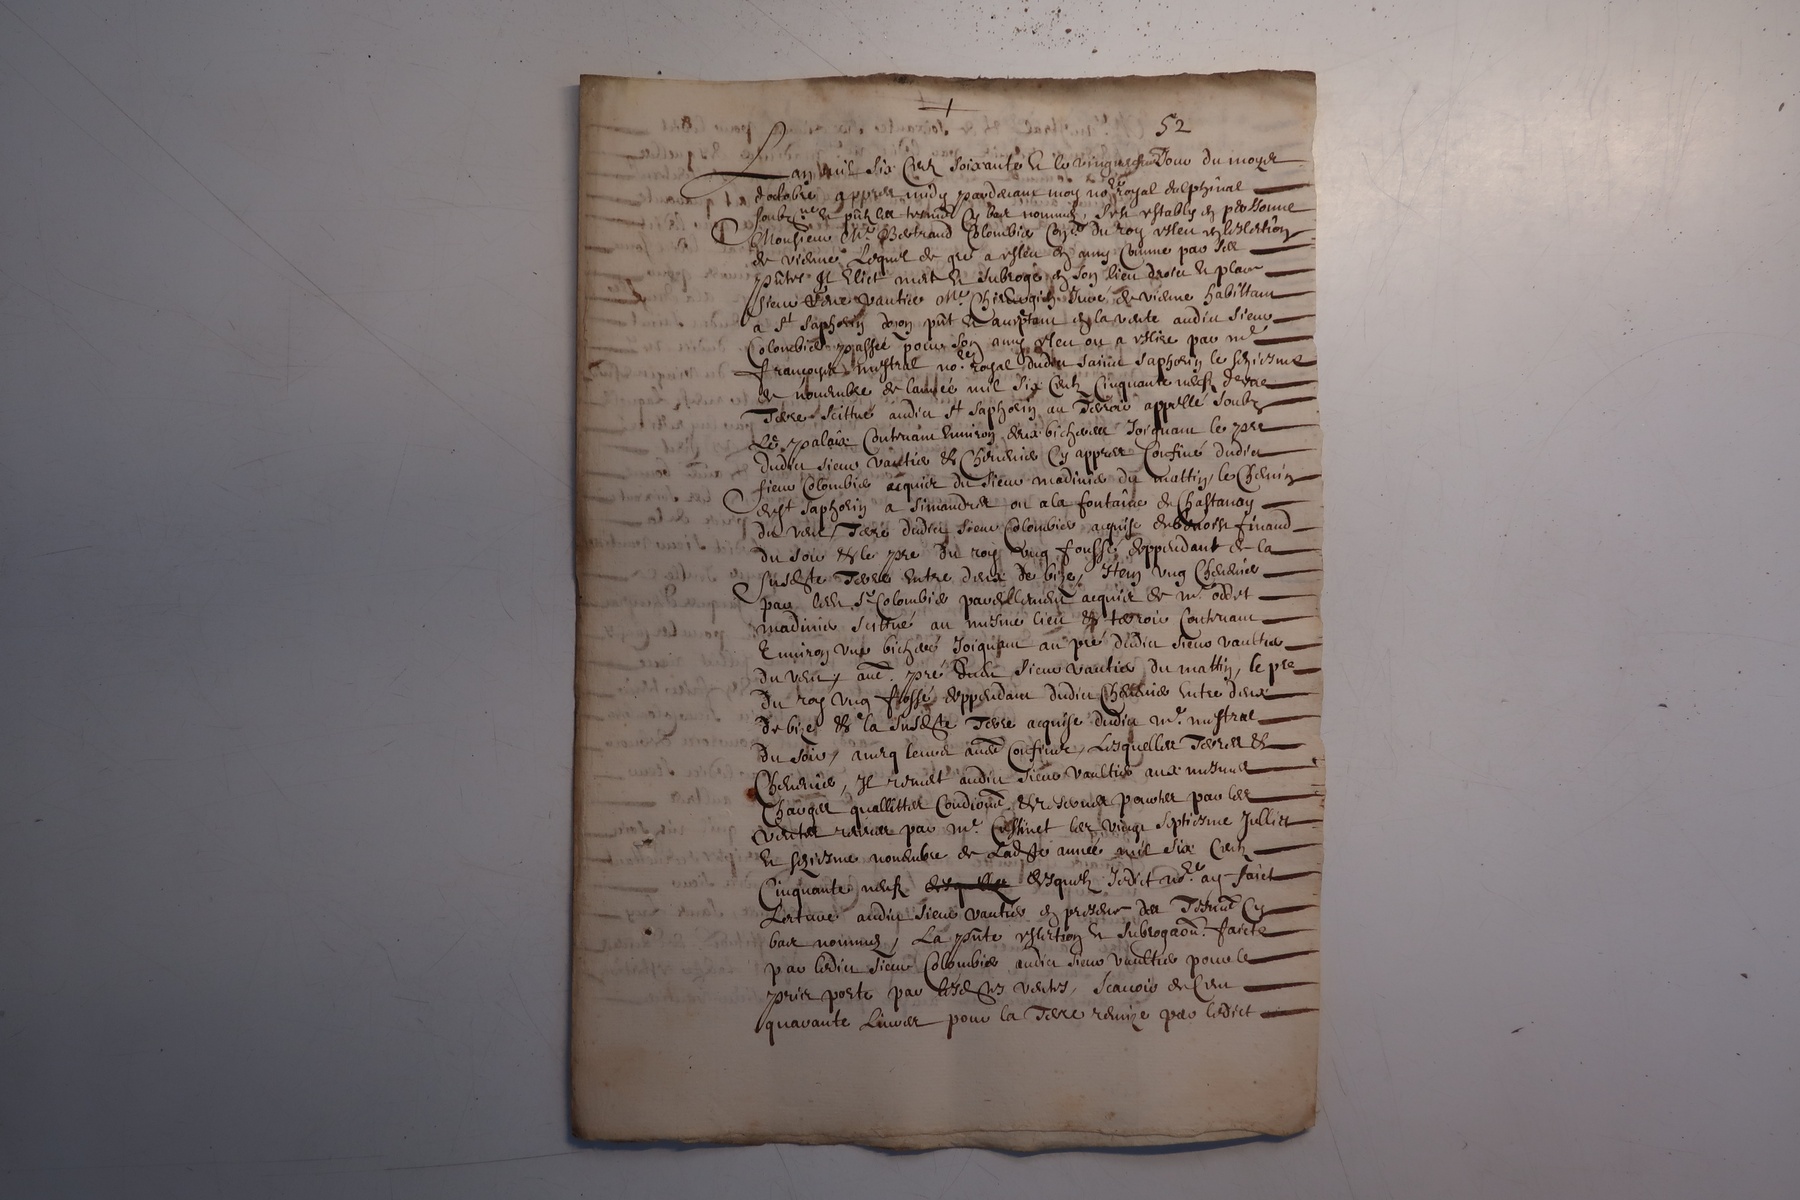 52
Lan mil Six Centz Soixante et le vingt du moys
doctobre appres midy pardevant moy no.re royal delphinal
soubz.ne et pntz les tesmoins Cy bas nommes, Sest estably en personne
Monsieur Mr Bertrand Colombier Con.er du roy esleu en lelection
de vienne Lequel de gre a esleu en amy Comme par Ces
pntes Il Eslict met et subroge en son lieu droict et place
sieur vaultier Me Chirurgien Juré de vienne habittant
a St Saphorin dozon pnt et acceptant de la vente audict sieur
Colombier passée pour son amy esleu ou a eslire par me
françoys mistral no.re royal dudict sainct Saphorin le seiziesme
de novembre de lannée mil Six Centz Cinquante neufz dune
Terre scittue audict St Saphorin au Terroir appellé soubz
Le palaix Contenant Environ deux bicherées Joignant le pre
dudict sieur vaultier et Chenevier Cy appres Confiné dudict
sieur Colombier acquis du sieur madinier du mattin, le Chemin
de St Saphorin a simandres ou a la fontaine de Chastanay
du vent, Terre dudict sieur Colombier acquise de benoist finand
du soir et le pre du roy ung foussé deppendant de la
susd.te Terre entre deux de bize, Item ung Chenevier
par led. Sr Colombier pareillement acquis de mr oddet
madinier scittué au mesme lieu et terroir Contenant
Environ une bicherée Joignant au pré dudict sieur vaultier
du vent, aut. pré dudict sieur vaultier du mattin, le pre
du roy ung fossé deppendant dudict Chenevier entre deux
de bize et la susd.te Terre acquise dudict mr mistral
du soir, avecq leurs aut.es Confins, Lesquelles Terres et
Chenevier, Il remet audict sieur vaultier aux mesmes
Charges quallittes Condions et reserves portées par les
ventes receues par me les vingt septiesme Juillet
et seiziesme novembre de Lad.te année mil six Centz
Cinquante neufz desquelz Jedict no.re ay faict
Lecture audict sieur vaultier en presence des Tesmoins Cy
bas nommes, La pnte eslection et subrogaon faicte
par ledict sieur Colombier audict sieur vaultier pour le
prix porté par lesd.tes ventes, scavoir de Cent
quarante Livres pour la Terre remize par ledict